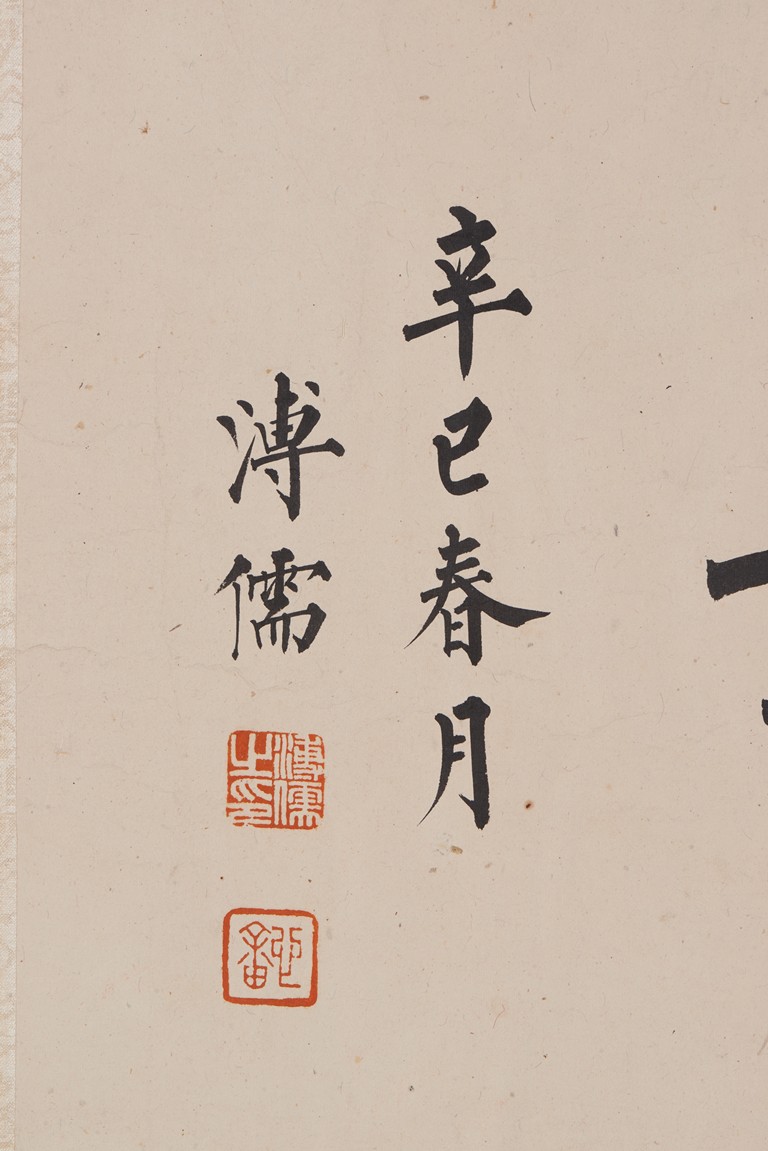 辛巳春月
溥儒
溥儒之印